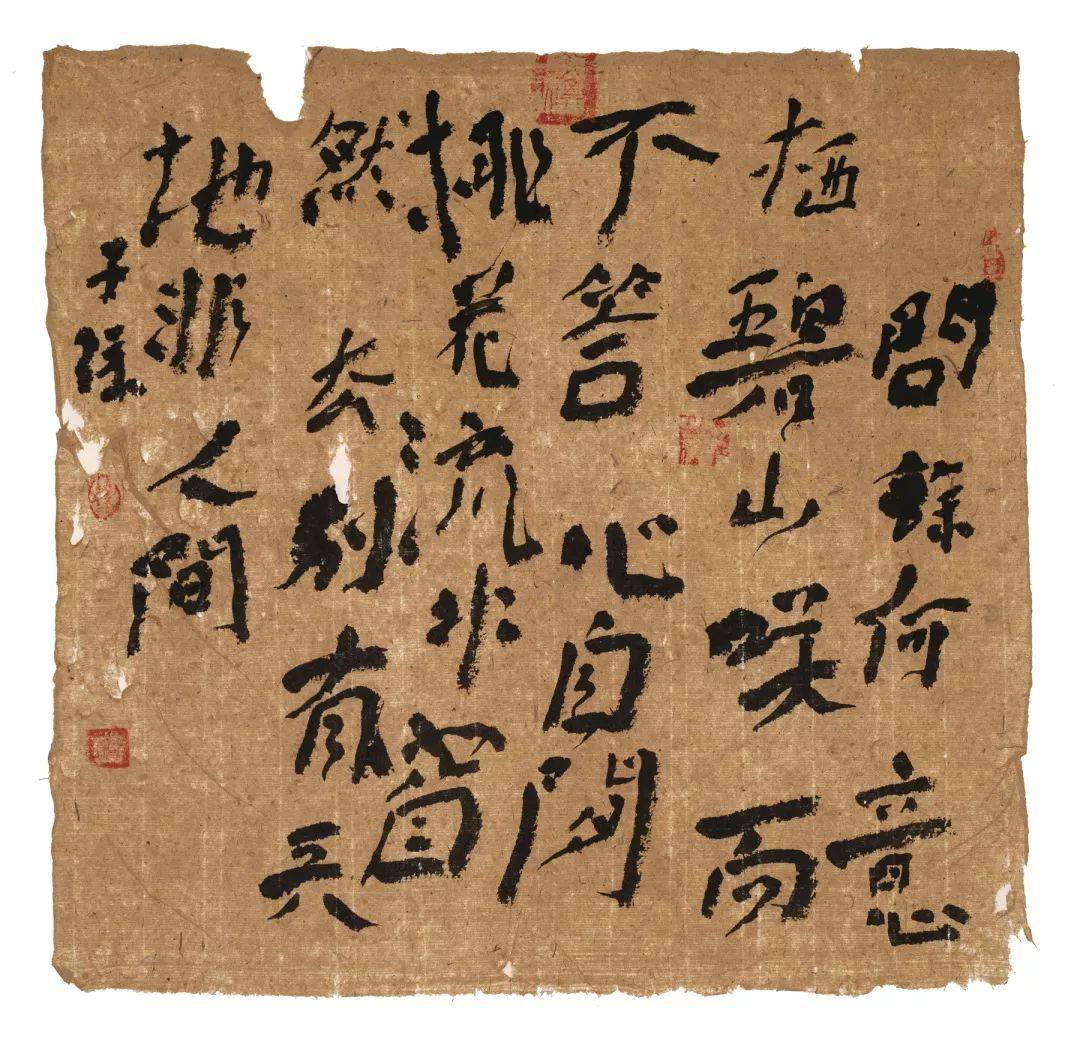 問餘何意
栖碧山咲而
不答心自閒
桃花流水窅
然去別有天
地非人間
子